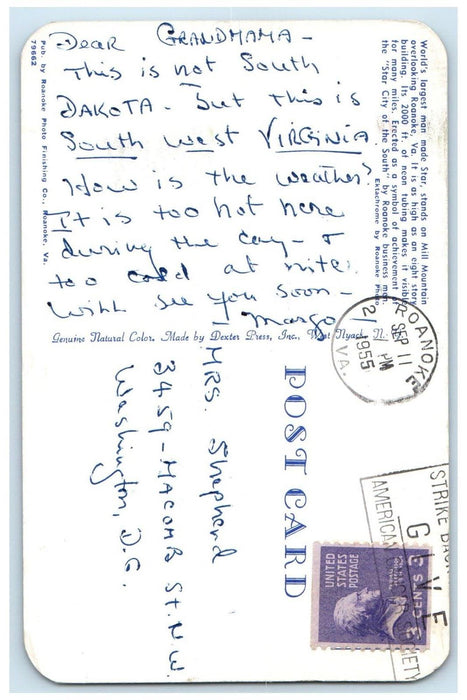 Dear GRANDMAMA -
This is not South
DAKOTA - but this is
South west VIRGINIA.
How is the weather?
It is too hot here
during the day - &
too cold at nite.
Will see you soon -
- Margo
World's largest man made Star, stands on Mill Mountain
overlooking Roanoke, Va. It is as high as an eight story
building. Its 2000 ft. of neon tubing makes it visible
for many miles. Erected as a symbol of achievement for
the "Star City of the South" by Roanoke business men.
Ektachrome by Roanoke Photo
Pub. by Roanoke Photo Finishing Co., Roanoke, Va.
79662
Genuine Natural Color. Made by Dexter Press, Inc., West Nyack, N.
POST CARD
MRS. Shepherd
3459 - MACOMB St. N.W.
Washington, D.C.
ROANOKE
SEP 11
2 PM
1955
VA.
STRIKE BACK
GIVE
AMERICAN CANCER SOCIETY
UNITED STATES
POSTAGE
3 CENTS 3